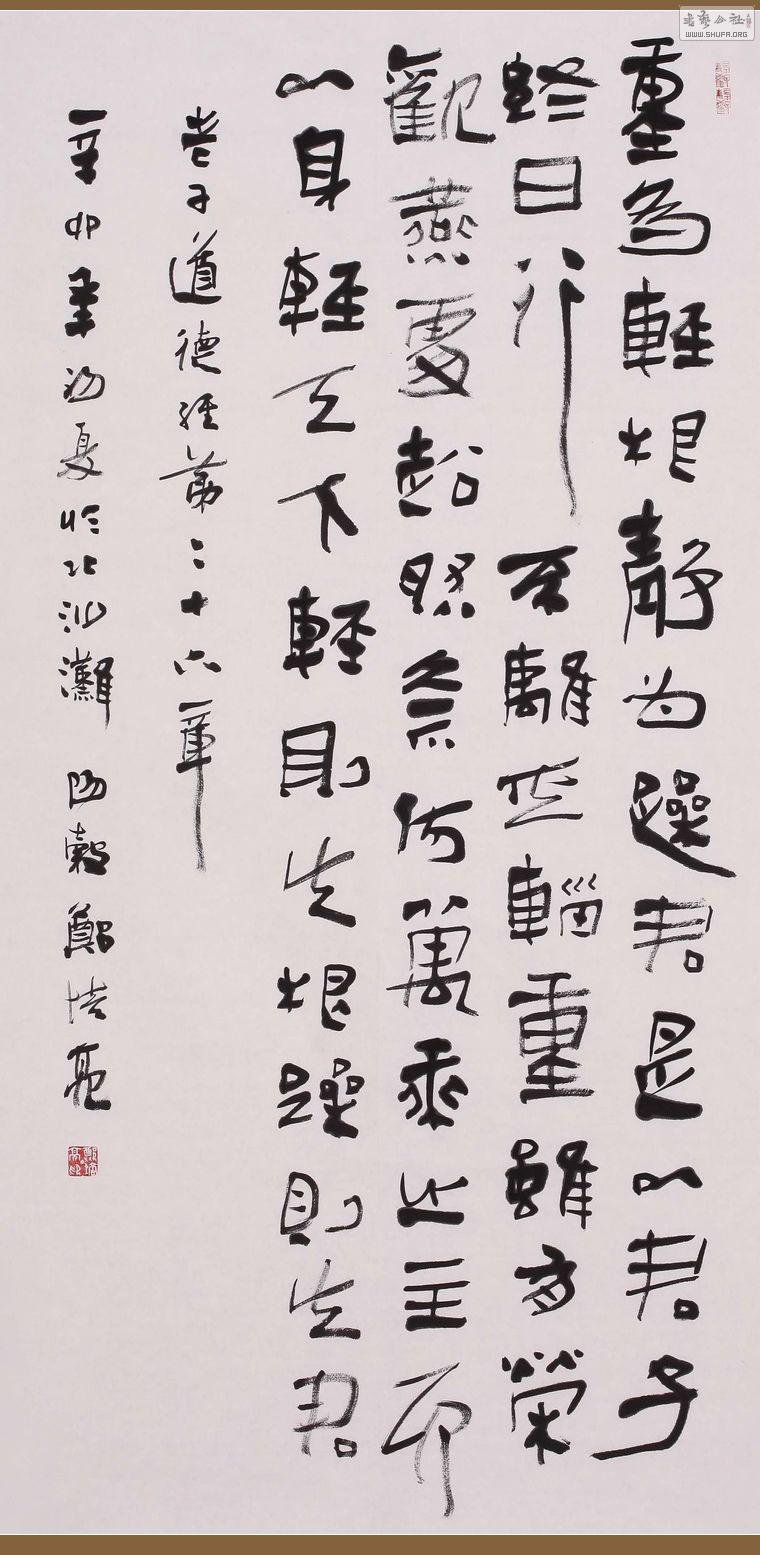 重為輕根靜为躁君是以君子
終日行不離其輜重雖有榮
觀燕處超然奈何萬乘之主而
以身輕天下輕則失根躁則失君
老子道德經第二十六章
辛卯年初夏於北沙灘 陽穀鄭培亮
書藝公社
WWW.SHUFA.ORG